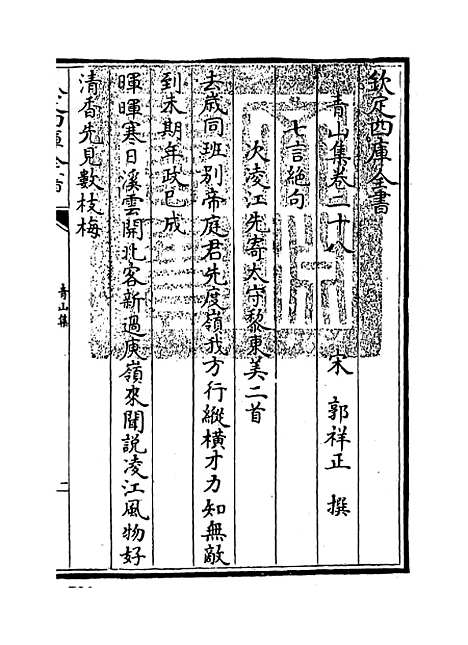 欽定四庫全書
青山集卷二十八
宋 郭祥正 撰
七言絶句
次凌江先寄太守黎東美二首
去歳同班别帝庭君先度嶺我方行縱横才力知無敵
到未期年政已成
暉暉寒日溪雲開北客新過庾嶺來聞說凌江風物好
清香先見數枝梅
青山集